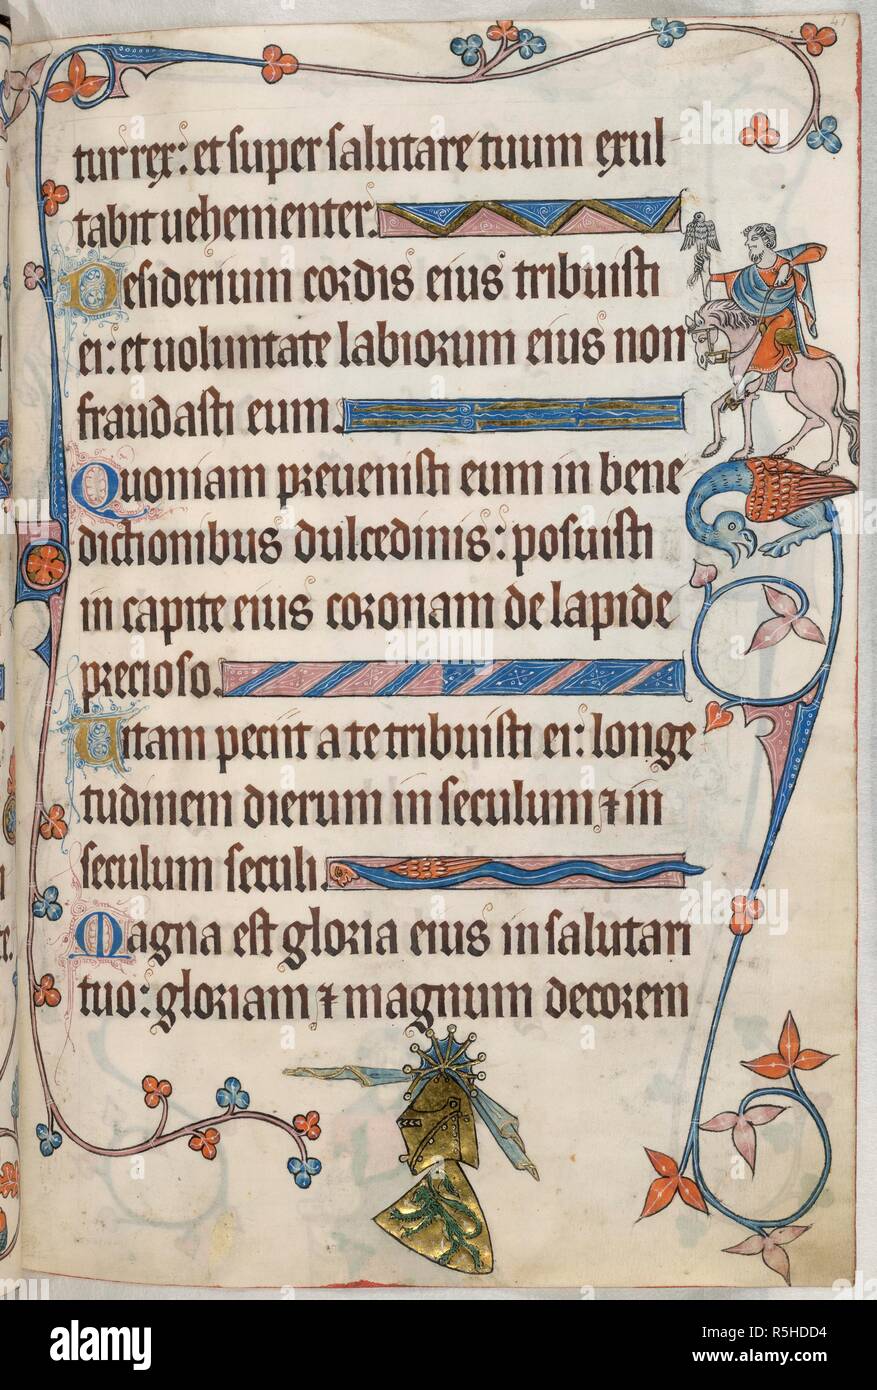 41
tur rex: et super salutare tuum exul
tabit uehementer.
Desiderium cordis eius tribuisti
ei: et uoluntate labiorum eius non
fraudasti eum.
Quoniam preuenisti eum in bene
dictionibus dulcedinis: posuisti
in capite eius coronam de lapide
precioso.
Uitam peciit a te tribuisti ei: longe
tudinem dierum in seculum ⁊ in
seculum seculi.
Magna est gloria eius in salutari
tuo: gloriam ⁊ magnum decorem
alamy
Image ID: R5HDD4
www.alamy.com